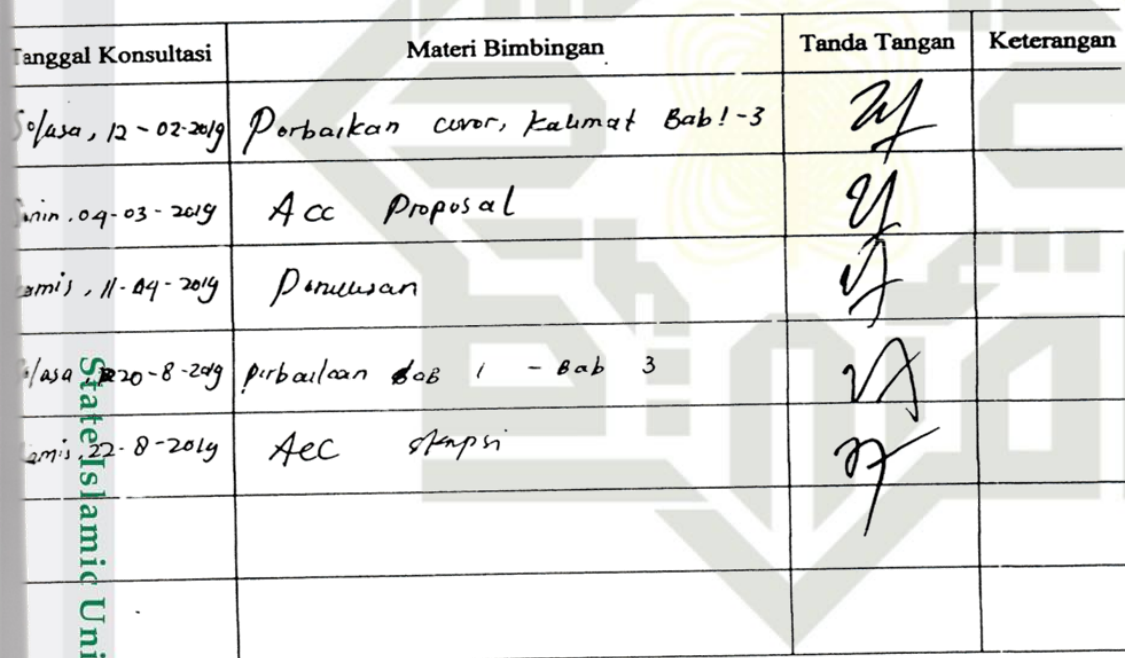 Tanggal Konsultasi Materi Bimbingan Tanda Tangan Keterangan
Selasa, 12 - 02-2019 Perbaikan cover, kalimat Bab 1-3
Senin, 04-03-2019 Acc Proposal
Kamis, 11-04-2019 Penulisan
Selasa, 20-8-2019 perbaikan Bab 1 - Bab 3
Kamis, 22-8-2019 Acc skripsi
State Islamic Uni